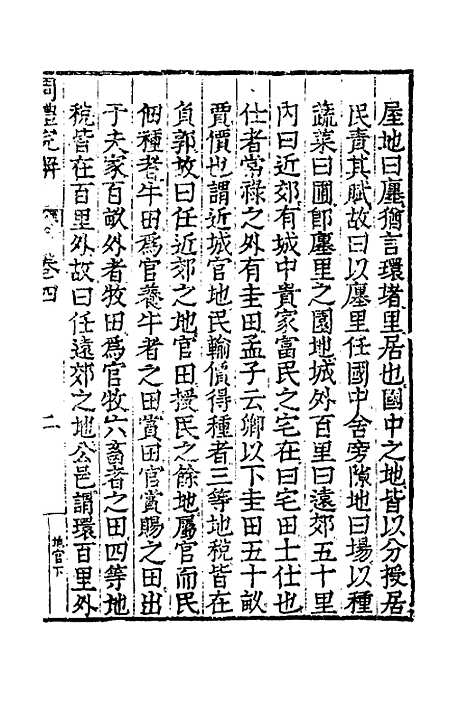 屋地曰廛猶言環堵里居也國中之地皆以分授居
民責其賦故曰以廛里任國中舍旁隙地曰場以種
蔬菜曰圃卽廛里之園地城外百里曰遠郊五十里
內曰近郊有城中貴家富民之宅在曰宅田士仕也
仕者常祿之外有圭田孟子云卿以下圭田五十畝
賈價也謂近城官地民輸價得種者三等地稅皆在
負郭故曰任近郊之地官田授民之餘地屬官而民
佃種者牛田爲官養牛者之田賞田官賞賜之田出
于夫家百畝外者牧田爲官牧六畜者之田四等地
稅皆在百里外故曰任遠郊之地公邑謂環百里外
周禮完解 卷四 二 地官下